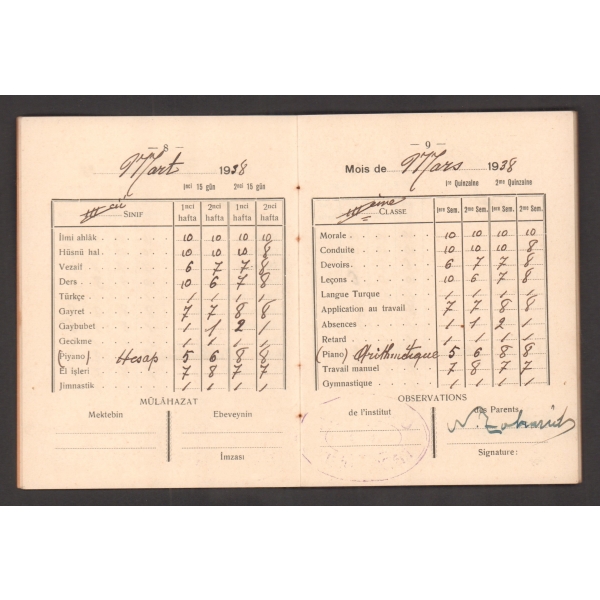 — 8 —
Mart 1938
1nci 15 gün 2nci 15 gün
III cü SINIF 1nci hafta 2nci hafta 1nci hafta 2nci hafta
İlmi ahlâk . . . . . . . 10 10 10 10
Hüsnü hal . . . . . . . 10 10 10 8
Vezaif . . . . . . . 6 7 7 8
Ders . . . . . . . 10 6 7 8
Türkçe . . . . . . . / / / /
Gayret . . . . . . . 7 7 8 8
Gaybubet . . . . . . . / 1 2 /
Gecikme . . . . . . . / / / /
(Piyano) Hesap 5 6 8 8
El işleri . . . . . . . 7 8 7 7
Jimnastik . . . . . . . / / / /
MÜLÂHAZAT
Mektebin Ebeveynin
İmzası
— 9 —
Mois de Mars 1938
1re Quinzaine 2me Quinzaine
III ème CLASSE 1ère Sem. 2me Sem. 1ère Sem. 2me Sem.
Morale . . . . . . . 10 10 10 10
Conduite . . . . . . . 10 10 10 8
Devoirs . . . . . . . 6 7 7 8
Leçons . . . . . . . 10 6 7 8
Langue Turque . . . . / / / /
Application au travail . . 7 7 8 8
Absences . . . . . . . / 1 2 /
Retard . . . . . . . / / / /
(Piano) Arithmétique 5 6 8 8
Travail manuel . . . . 7 8 7 7
Gymnastique . . . . . / / / /
OBSERVATIONS
de l'institut des Parents
Signature: